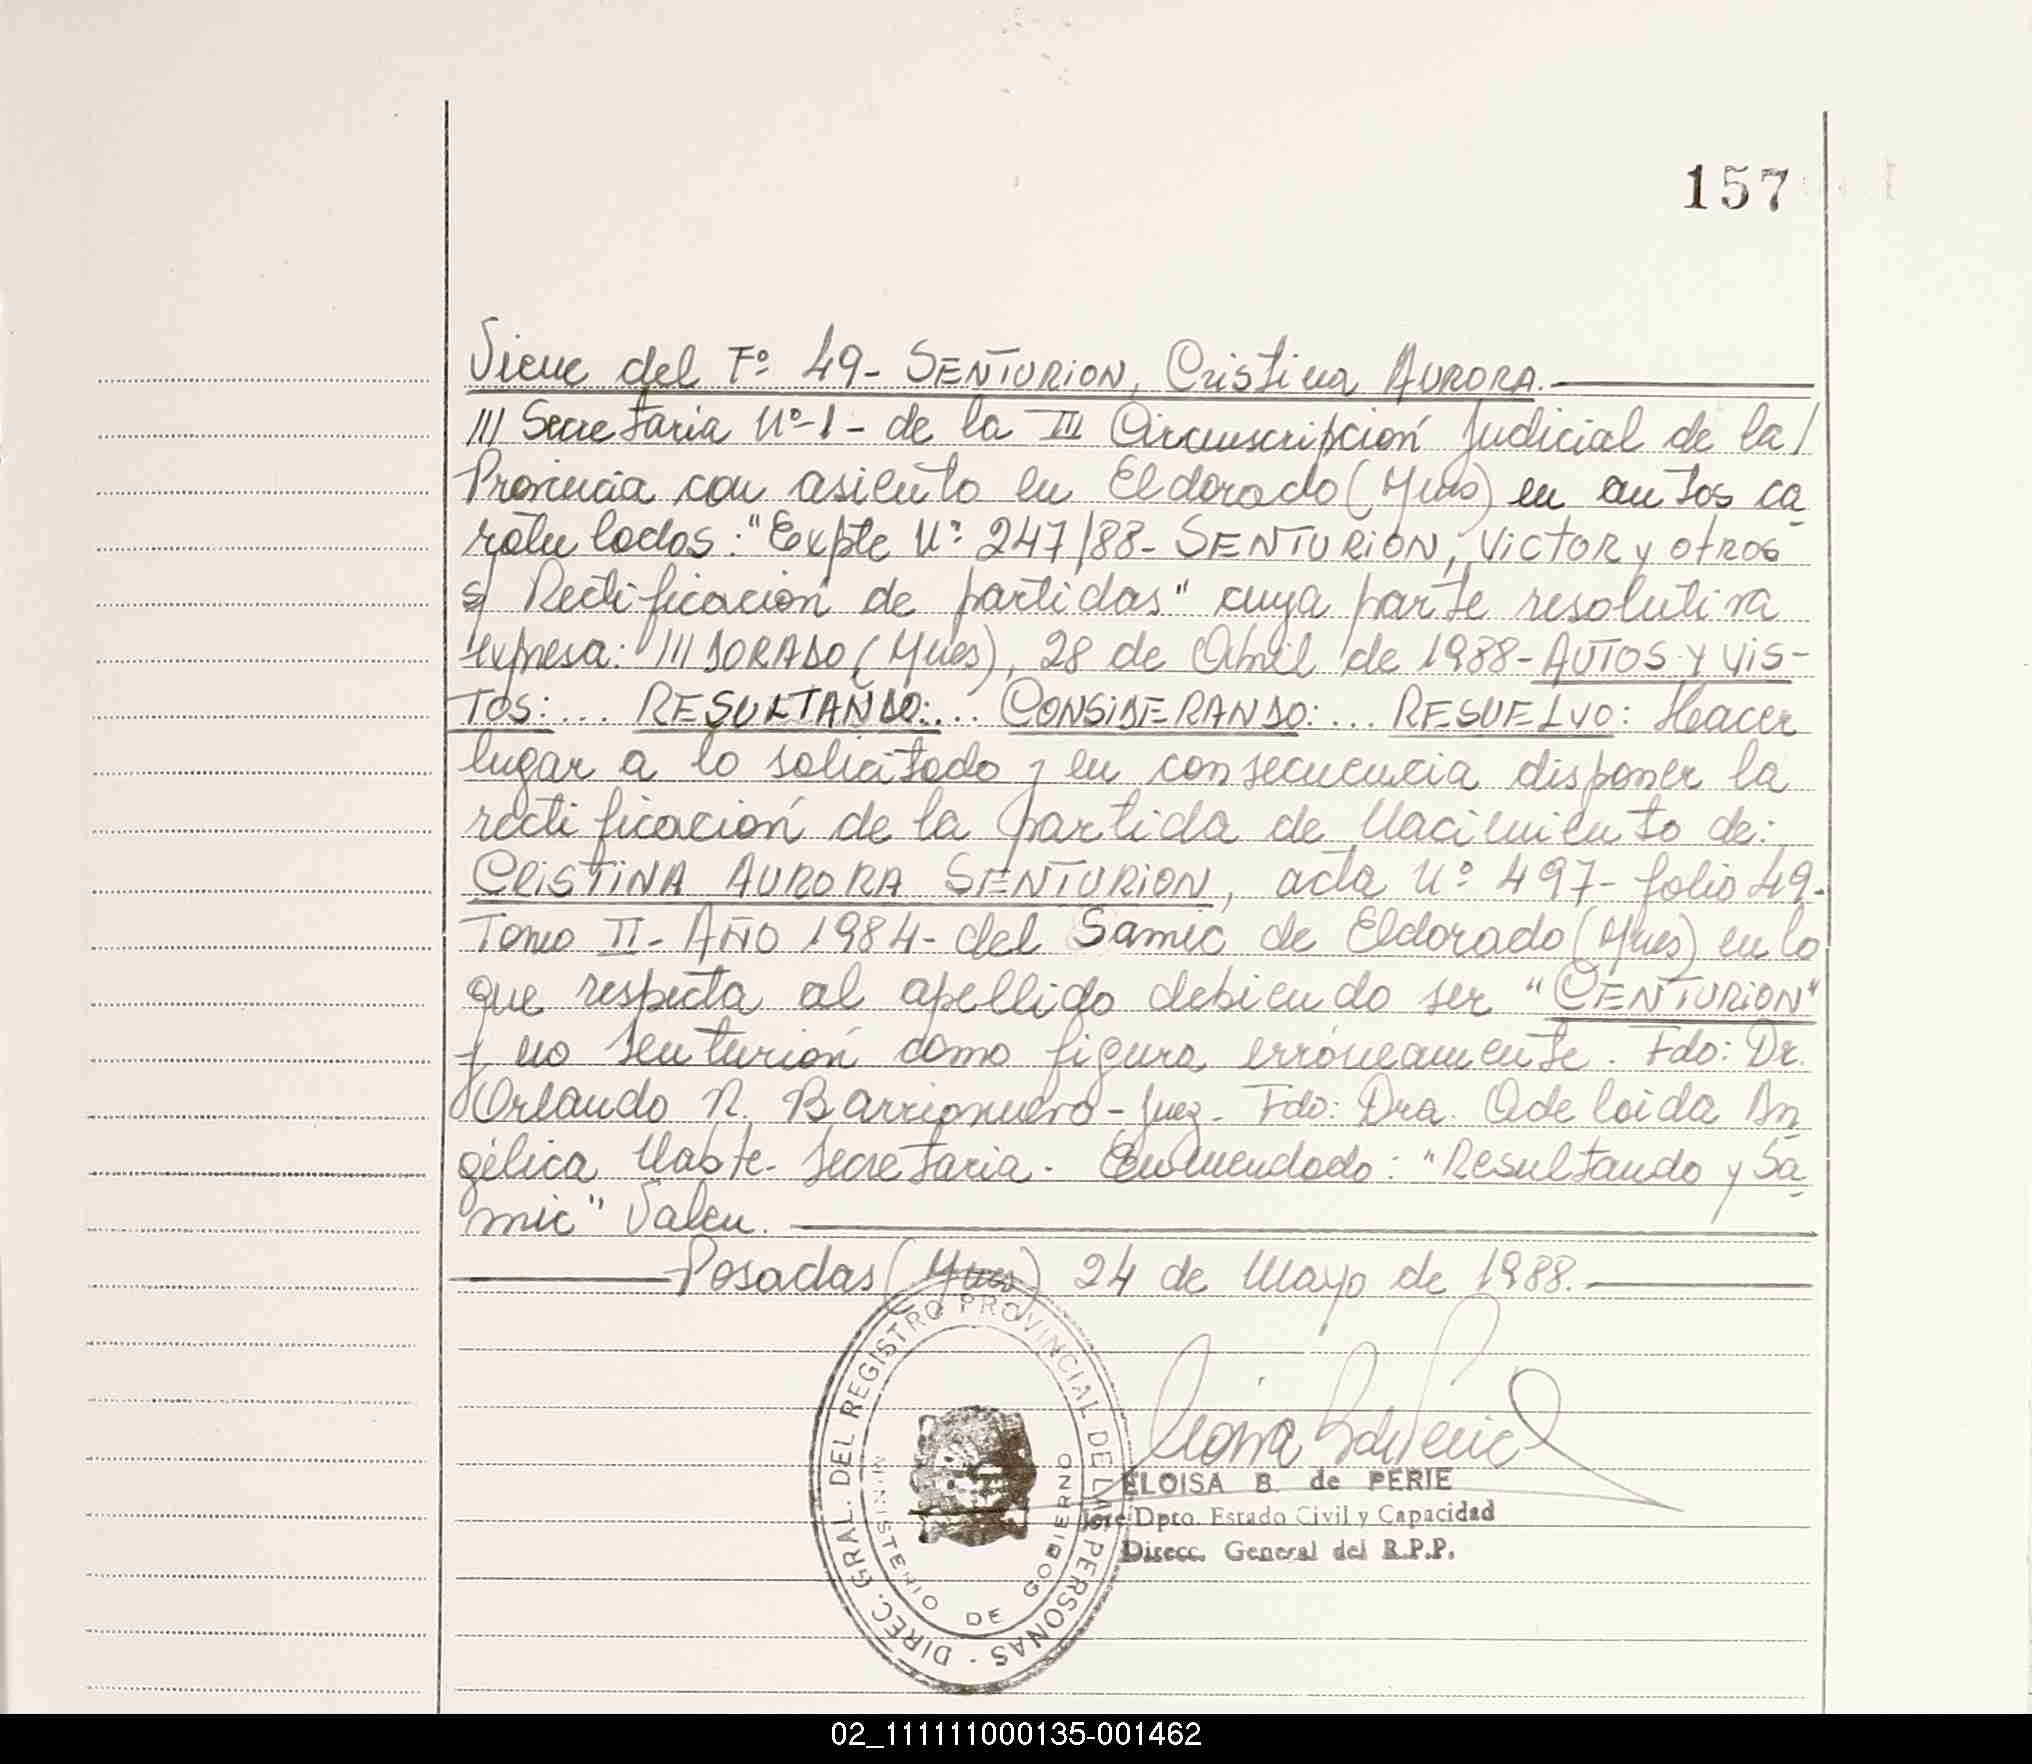 157
Viene del Fº 49- SENTURION, Cristina AURORA.
/// Secretaria Nº-1- de la III Circunscripción Judicial de la/
Provincia con asiento en Eldorado (Mnes) en autos ca-
ratulados: "Expte Nº 247/88- SENTURION, Victor y otros
s/ Rectificación de partidas" cuya parte resolutiva
expresa: "/// DORADO (Mnes), 28 de Abril de 1988- AUTOS Y VIS-
TOS:... RESULTANDO:... CONSIDERANDO:... RESUELVO: Hacer
lugar a lo solicitado y en consecuencia disponer la
rectificación de la partida de Nacimiento de:
CRISTINA AURORA SENTURION, acta Nº 497- folio 49-
Tomo II- AÑO 1984- del Samic de Eldorado (Mnes) en lo
que respecta al apellido debiendo ser "CENTURION"
y no Senturión como figura erróneamente. Fdo: Dr.
Orlando R. Barrionuevo- Juez. Fdo: Dra. Adelaida An-
gélica Secretaria. Enmendado: "Resultando y Sa-
mic" Valen.
Posadas (Mnes) 24 de Mayo de 1988.
DIREC. GRAL. DEL REGISTRO PROVINCIAL DE LAS PERSONAS
MINISTERIO DE GOBIERNO
ELOISA B. de PERIE
Jefe Dpto. Estado Civil y Capacidad
Direcc. General del R.P.P.
02_111111000135-001462